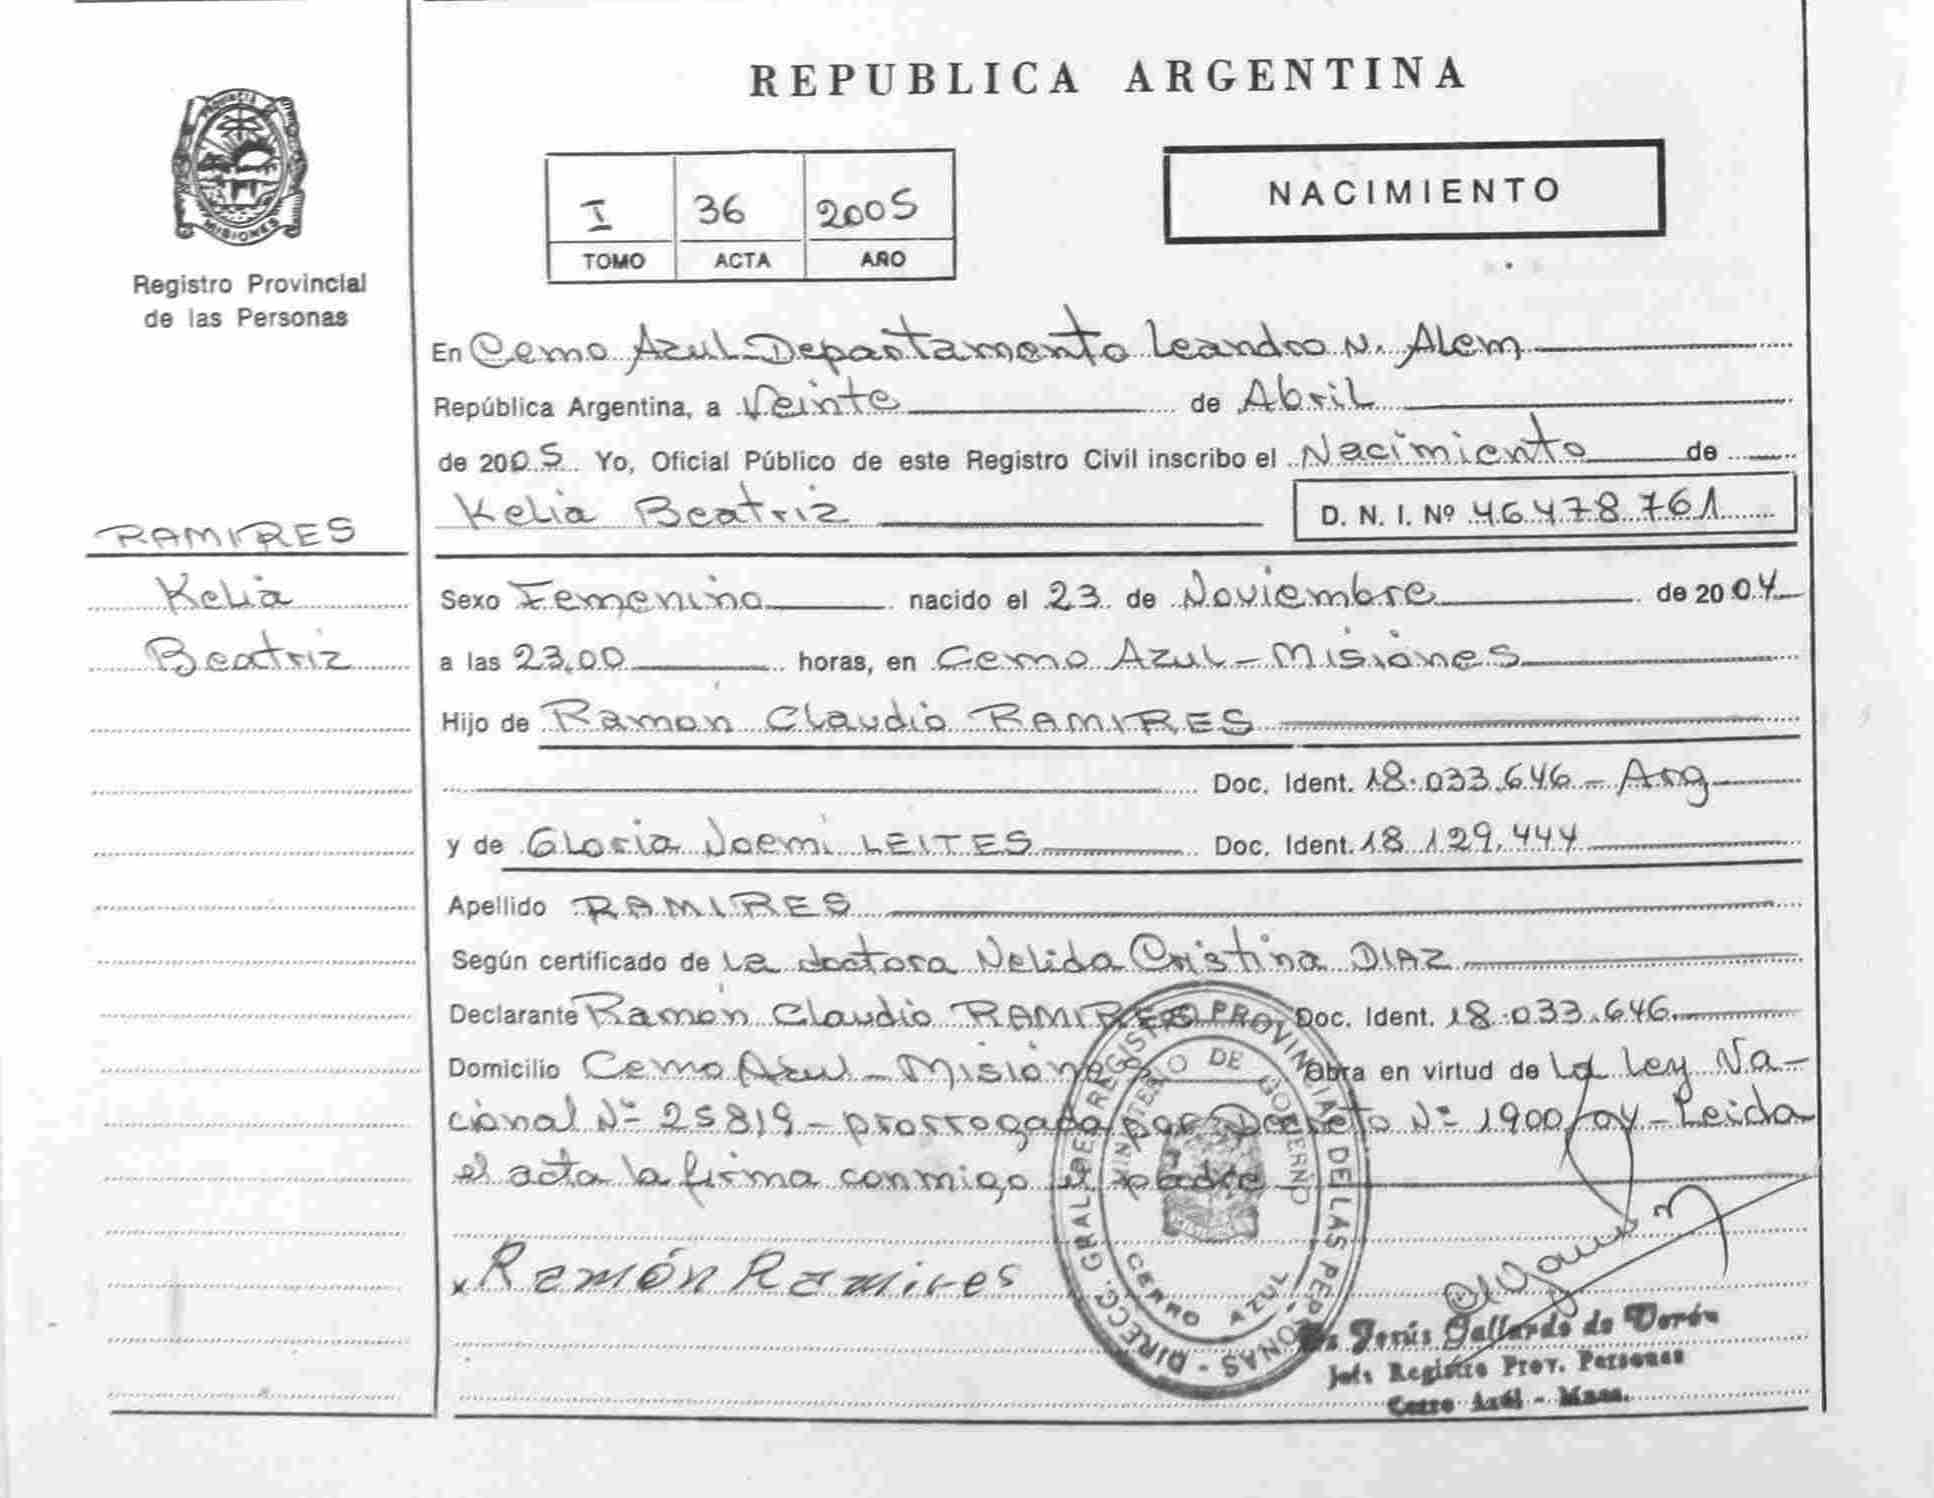 REPUBLICA ARGENTINA
PROVINCIA DE
MISIONES
Registro Provincial
de las Personas
I 36 2005
TOMO ACTA AÑO
NACIMIENTO
En Cerro Azul - Departamento Leandro N. Alem
República Argentina, a Veinte de Abril
de 2005 Yo, Oficial Público de este Registro Civil inscribo el Nacimiento de
Kelia Beatriz D. N. I. Nº 46478761
RAMIRES
Kelia
Beatriz
Sexo Femenino nacido el 23 de Noviembre de 2004
a las 23,00 horas, en Cerro Azul - Misiones
Hijo de Ramon Claudio RAMIRES
Doc. Ident. 18.033.646 - Arg
y de Gloria Noemi LEITES Doc. Ident. 18 129.444
Apellido RAMIRES
Según certificado de La doctora Nelida Cristina DIAZ
Declarante Ramón Claudio RAMIRES Doc. Ident. 18.033.646
Domicilio Cerro Azul - Misiones Obra en virtud de La Ley Na-
cional Nº 25819 - prorrogada por Decreto Nº 1900/04 - Leida
el acta la firma conmigo el padre
x Ramón Ramires
DIRECC. GRAL. DE REGISTRO PROVINCIAL DE LAS PERSONAS -
MINISTERIO DE GOBIERNO
CERRO AZUL
Jesús Gallardo de Verón
Jefe Registro Prov. Personas
Cerro Azul - Mnes.